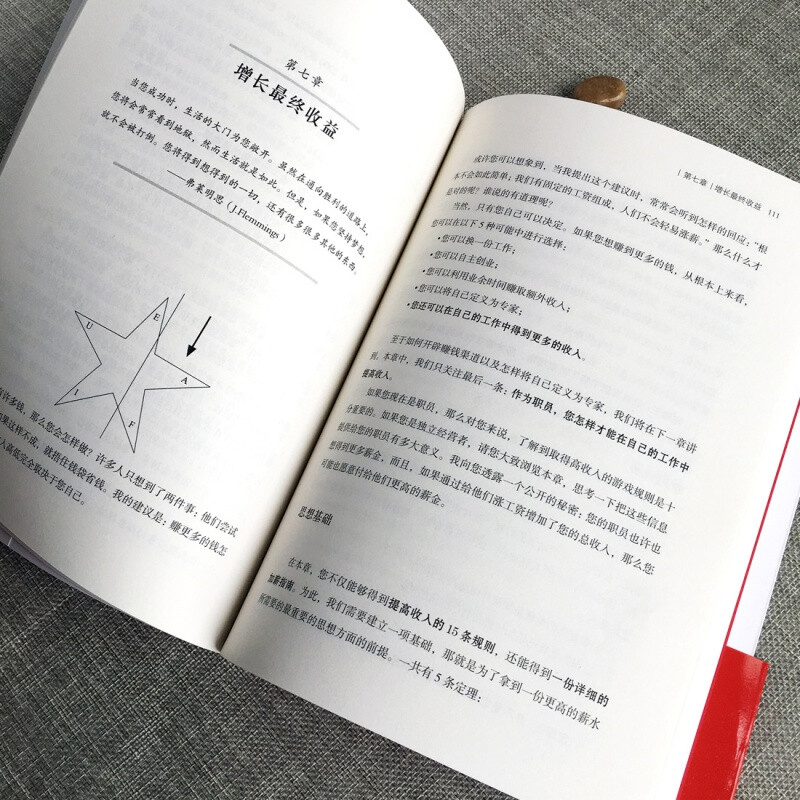 第七章
增长最终收益
当您成功时，生活的大门为您敞开。虽然在通向胜利的道路上，
您将会常常看到地狱，然而生活就是如此。但是，如果您坚持梦想，
就不会被打倒。您将得到想得到的一切，还有很多很多其他的东西。
——弗莱明思（J.Flemmings）
E
U
A
I
F
有许多钱，那么您会怎样做？许多人只想到了两件事：他们尝试
如果这样不成，就捂住钱袋省钱。我的建议是：赚更多的钱怎
人高低完全取决于您自己。
| 第七章 | 增长最终收益 111
或许您可以想象到，当我提出这个建议时，常常会听到怎样的回应：“根
本不会如此简单；我们有固定的工资组成，人们不会轻易涨薪。”那么什么才
是对的呢？谁说的有道理呢？
当然，只有您自己可以决定。如果您想赚到更多的钱，从根本上来看，
您可以在以下5种可能中进行选择：
•您可以换一份工作；
•您可以自主创业；
•您可以利用业余时间赚取额外收入；
•您可以将自己定义为专家；
•您还可以在自己的工作中得到更多的收入。
至于如何开辟赚钱渠道以及怎样将自己定义为专家，我们将在下一章讲
到。本章中，我们只关注最后一条：作为职员，您怎样才能在自己的工作中
提高收入。
如果您现在是职员，那么对您来说，了解到取得高收入的游戏规则是十
分重要的。如果您是独立经营者，请您大致浏览本章，思考一下把这些信息
提供给您的职员有多大意义。我向您透露一个公开的秘密：您的职员也许也
想得到更多薪金，而且，如果通过给他们涨工资增加了您的总收入，那么您
可能也愿意付给他们更高的薪金。
思想基础
在本章，您不仅能够得到提高收入的15条规则，还能得到一份详细的
加薪指南。为此，我们需要建立一项基础，那就是为了拿到一份更高的薪水
所需要的最重要的思想方面的前提。一共有5条定理：